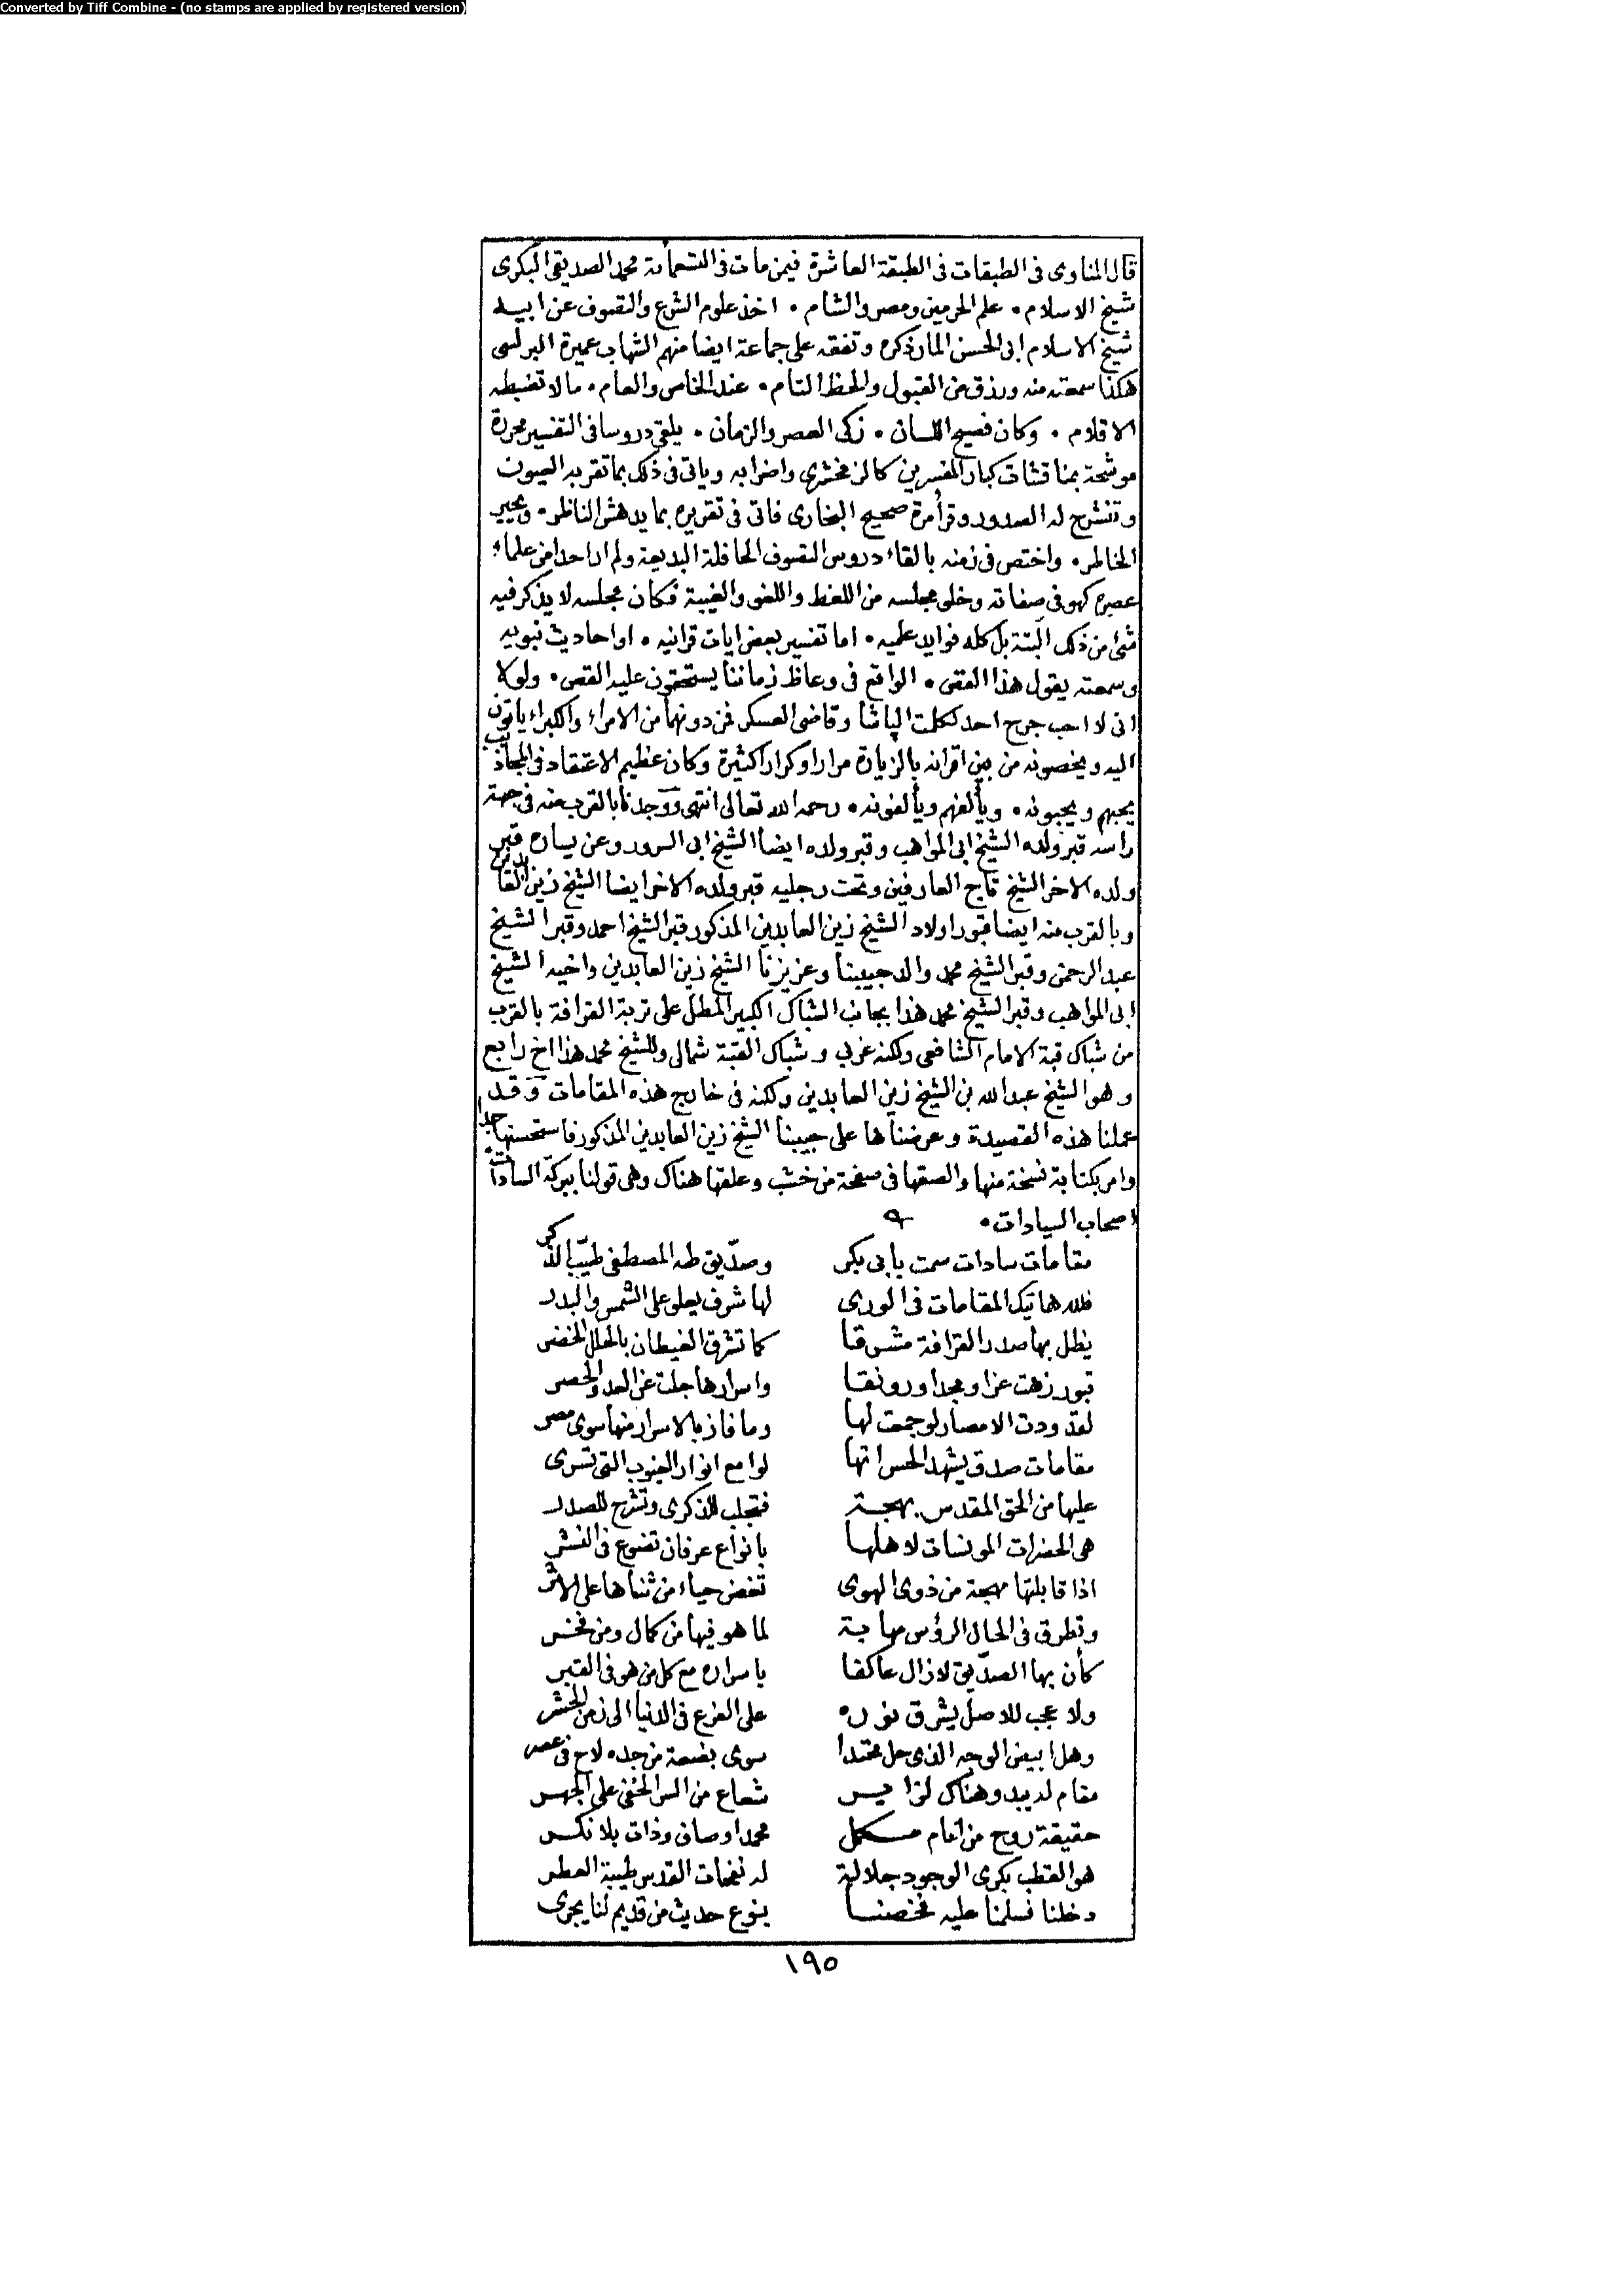 Converted by Tiff Combine - (no stamps are applied by registered version)
قال المناوى فى الطبقات فى الطبقة العاشرة فيمن مات فى التسعمائة محمد الصديقى البكرى
شيخ الاسلام • علم الحرمين ومصر والشام • اخذ علوم الشرع والتصوف عن ابيه
شيخ الاسلام ابى الحسن المار ذكره وتفقه على جماعة ايضا منهم الشهاب عميرة البرلسى
هكذا سمعته منه ورزق من القبول والحظ التام • عند الخاص والعام • ما لا تضبطه
الاقلام • وكان فصيح اللسان • زكى العصر والزمان • يلقى دروسا فى التفسير محررة
موشحة بمناقشات كبار المفسرين كالزمخشرى واضرابه وياتى فى ذلك بما تقر به العيون
وتنشرح له الصدور وقرأ مرة صحيح البخارى فاتى فى تقريره بما يدهش الناظر • ويحير
الخاطر • واختص فى زمنه بالقاء دروس التصوف الحافلة البديعة ولم ار احدا من علماء
عصره كهو فى صفاته وخلى مجلسه من اللغط واللغو والغيبة فكان مجلسه لا يذكر فيه
شئ من ذلك البتة بل كله فوايد علميه • اما تفسير بعض ايات قرانيه • او احاديث نبويه
وسمعته يقول هذا القص • الواقع فى وعاظ زماننا يستحقون عليه القص • ولولا
انى لا احب جرح احد لكلمت الباشا وقاضى العسكر فمن دونهما من الامراء والكبراء ياتون
اليه ويخصونه من بين اقرانه بالزيارة مرارا وكرارا كثيرة وكان عظيم الاعتقاد فى المجاذيب
يحبهم ويحبونه • ويألفهم ويألفونه • رحمه الله تعالى انتهى ووجدنا بالقرب منه فى جهة
راسه قبر ولده الشيخ ابى المواهب وقبر ولده ايضا الشيخ ابى السرور وعن يساره قبر
ولده الاخر الشيخ تاج العارفين وتحت رجليه قبر ولده الاخر ايضا الشيخ زين العابدين
وبالقرب منه ايضا قبور اولاد الشيخ زين العابدين المذكور قبر الشيخ احمد وقبر الشيخ
عبد الرحمن وقبر الشيخ محمد والد حبيبنا وعزيزنا الشيخ زين العابدين واخيه الشيخ
ابى المواهب وقبر الشيخ محمد هذا بجانب الشباك الكبير المطل على تربة القرافة بالقرب
من شباك قبة الامام الشافعى ولكنه غربى وشباك القبة شمالى وللشيخ محمد هذا اخ رابع
وهو الشيخ عبد الله بن الشيخ زين العابدين ولكنه فى خارج هذه المقامات وقد
عملنا هذه القصيدة وعرضناها على حبيبنا الشيخ زين العابدين المذكور فاستحسنها جدا
وامر بكتابة نسخة منها والصقها فى صفحة من خشب وعلقها هناك وهى قولنا ببركة السادات
اصحاب السيادات •
مقامات سادات سمت بابى بكر وصدّيق طه المصطفى طيّب الذكر
فلله هاتيك المقامات فى الورى لها شرف يعلو على الشمس والبدر
يظل بها صدر القرافة مشرقا كما تشرق الغيطان بالحلل الخضر
قبور زهت عزا ومجدا ورونقا واسرارها جلت عن العد والحصر
لقد ودت الامصار لو جمعت لها وما فاز بالاسرار منها سوى مصر
مقامات صدق يشهد الحس انها لوامع انوار الغيوب التى تسرى
عليها من الحق المقدس بهجة فتجلب للذكرى وتشرح للصدر
هى الحضرات المونسات لاهلها بانواع عرفان تضوع فى النشر
اذا قابلتها مهجة من ذوى الهوى تغض حياء من ثناها على الاثر
وتطرق فى الحال الرؤس مهابة لما هو فيها من كمال ومن فخر
كأن بها الصدّيق لازال عاكفا باسراره مع كل من هو فى القبر
ولا عجب للاصل يشرق نوره على الفرع فى الدنيا الى زمن الحشر
وهل ابيض الوجه الذى حل محتدا سوى بضعة من جده لاح فى عصر
مقام لديه يبدو هناك لزايــر شعاع من السر الخفى على الجهر
حقيقة روح من امام مكمل محمد اوصاف وذات بلا نكر
هو القطب بكرى الوجود جلالة له نفحات القدس طيبة العطر
دخلنا فسلمنا عليه فخصنا بنوع حديث من قديم لنا يجرى
١٩٥